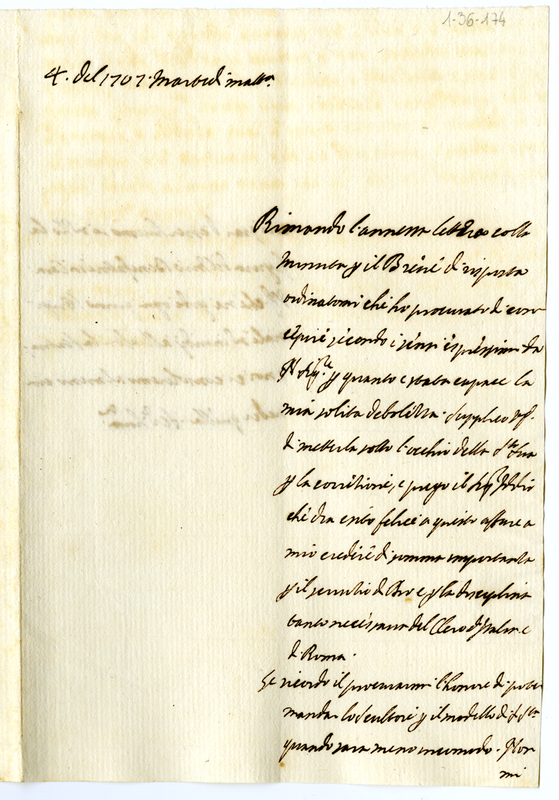 1-36-174
4. del 1707. Martedi matt.ª
Rimando l'annessa lettera colla
minuta p il Breve di risposta
ordinatomi che ho procurato di con=
cepire secondo i sensi espressimi da
p quanto è stata capace la
mia solita debolezza. Supplico
di metterla sotto l'occhio della S.tà Sua
p la correttione, e prego il Sig.r Iddio
che dia esito felice a questo affare a
mio credere di somma importanza
p il servitio di Dio e p la disciplina
tanto necessaria del Clero d'Italia e
di Roma.
Le ricordo il procurarmi l'honore di poter
mandar lo scultore p il modello di
quando sarà meno incomodo. Non
mi